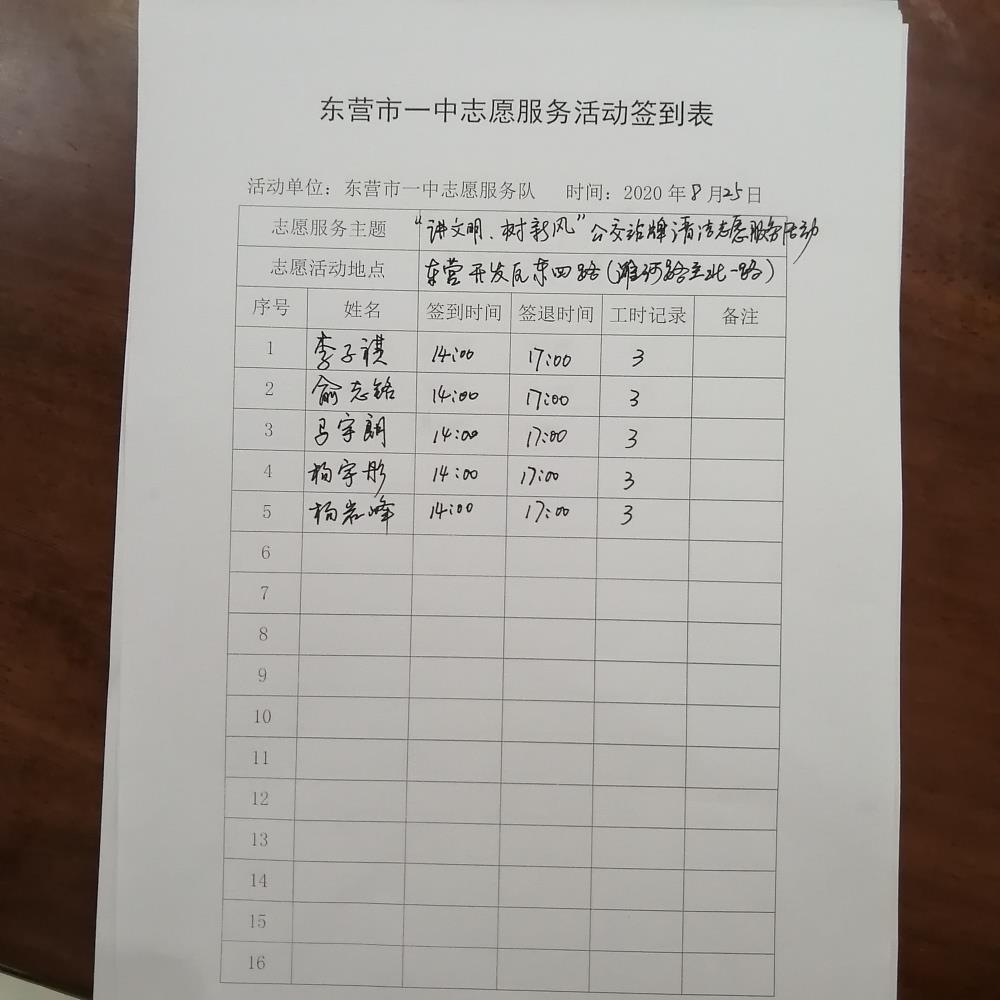 东营市一中志愿服务活动签到表
活动单位：东营市一中志愿服务队 时间：2020 年 8 月 25 日
志愿服务主题 “讲文明、树新风”公交站牌清洁志愿服务活动
志愿活动地点 东营开发区东四路（潍河路至北一路）
序号 姓名 签到时间 签退时间 工时记录 备注
1 李子祺 14:00 17:00 3
2 俞志铭 14:00 17:00 3
3 马宇朗 14:00 17:00 3
4 杨宇彤 14:00 17:00 3
5 杨岩峰 14:00 17:00 3
6
7
8
9
10
11
12
13
14
15
16